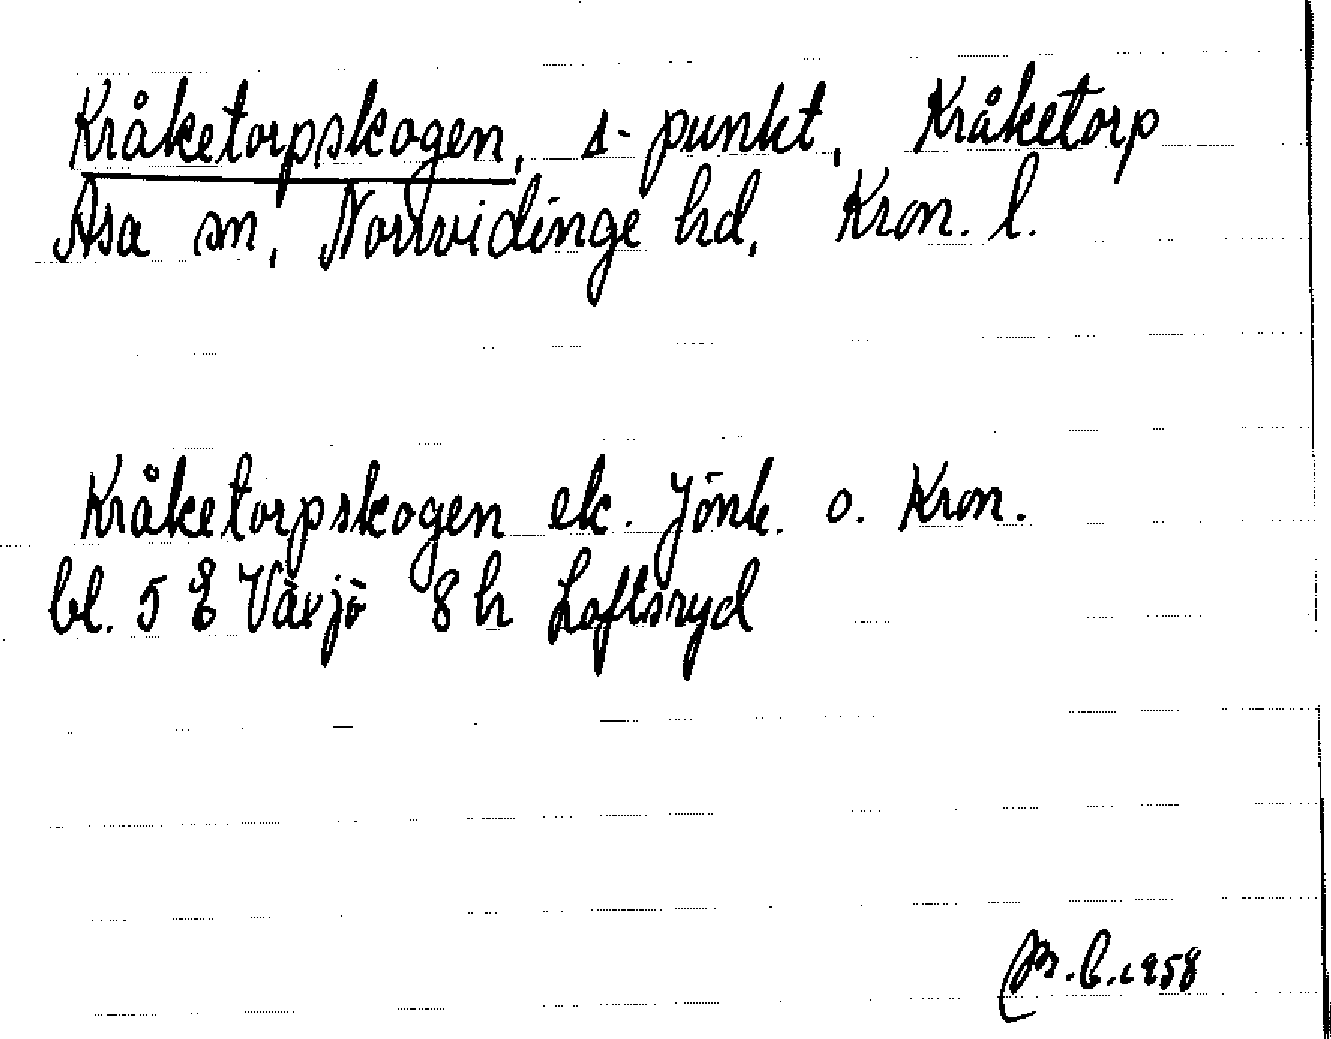 Kråketorpskogen, s-punkt, Kråketorp
Asa sn, Norrvidinge hd, Kron. l.
Kråketorpskogen ek. Jönk. o. Kron.
bl. 5 E Växjö 8 h Loftsryd
M.B. 1958